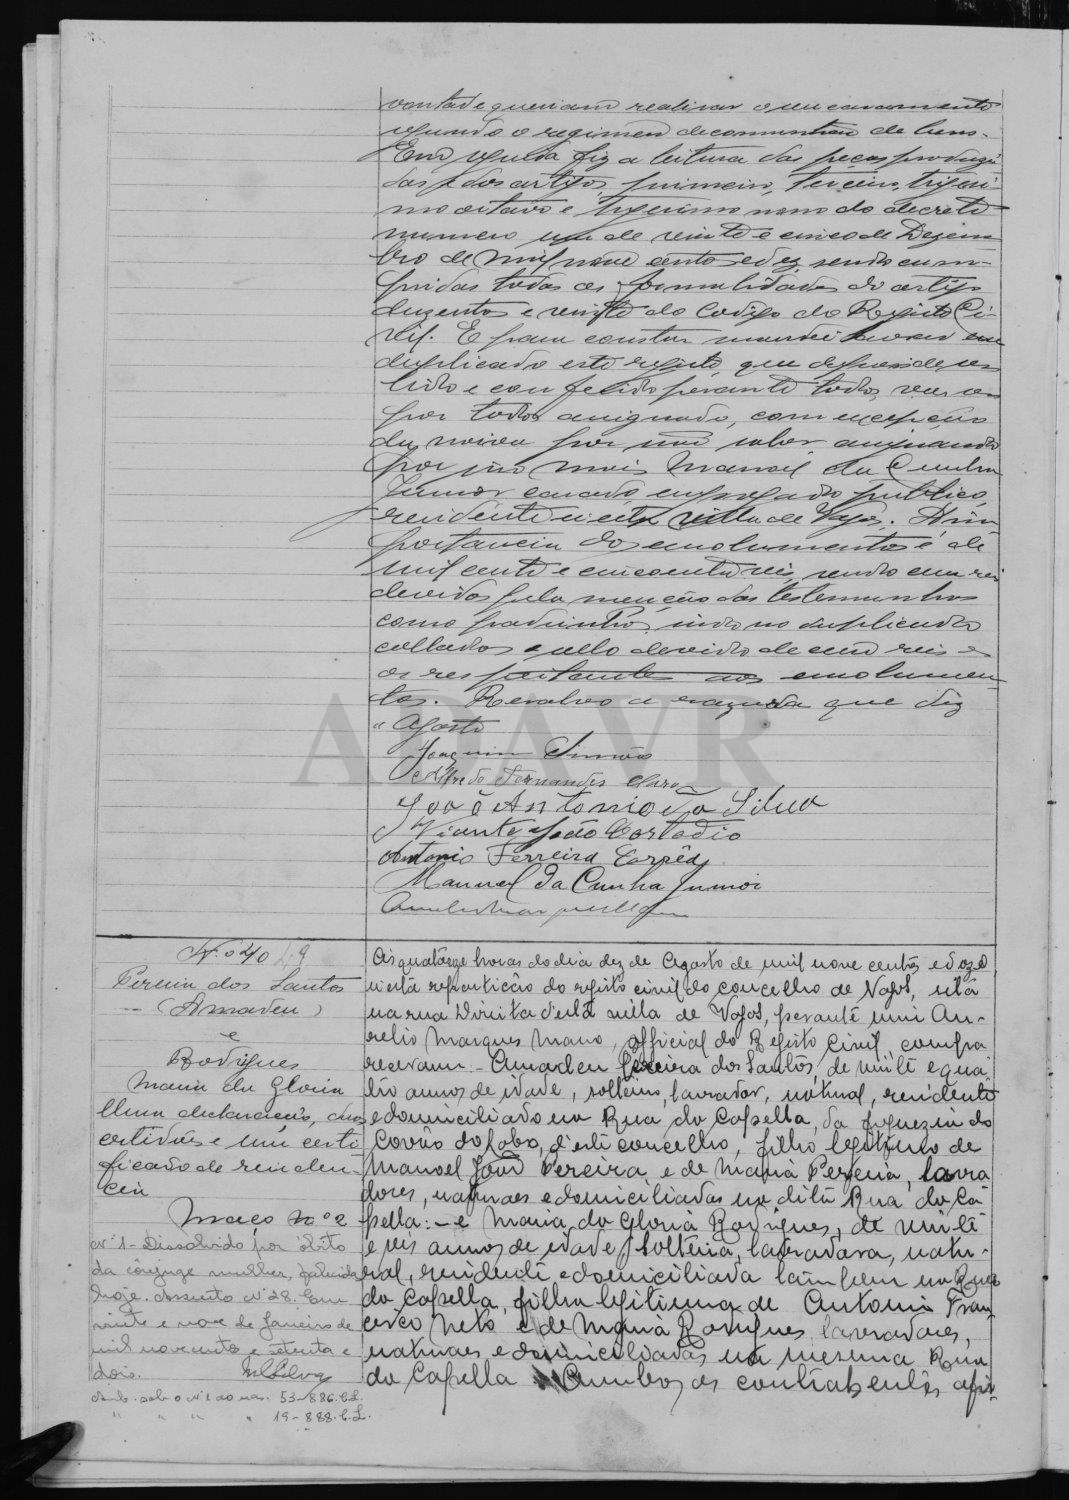 vontade queriam realisar o seu casamento
segundo o regimen de communhão de bens.
Em seguida fiz a leitura das peças produzi-
das e dos artigos primeiro, terceiro, trigesi-
mo oitavo e trigesimo nono do decreto
numero um de vinte e cinco de Dezem-
bro de mil nove centos e dez, sendo cum-
pridas todas as formalidades do artigo
duzentos e vinte do Codigo do Registo Ci-
vil. E para constar mandei lavrar em
duplicado este registo, que depois de ser
lido e conferido perante todos, vae ser
por todos assignado, com excepção
da noiva por não saber assignando
por ella mais Manoel da Cunha
Junior casado, empregado publico,
residente n'esta villa de Vagos. A im-
portancia dos emolumentos é de
mil cento e cincoenta reis, sendo cem reis
devidos pela menção das testemunhas
como padrinhos, indo no duplicado
collados o sello devido de cem reis e
os respeitantes aos emolumen-
tos. Resalvo a razura que diz
"Agosto
Joaquim Simões
Alfredo Fernandes
João Antonio da Silva
Vicente João Cortadio
Antonio Ferreira
Manuel da Cunha Junior
N.º 40
Pereira dos Santos
(Amadeu)
e
Rodrigues
Maria da Gloria
Uma declaração, duas
certidões e um certi-
ficado de residen-
cia
Maço Nº 2
Nº 1 - Dissolvido por óbito
da cônjuge mulher, falecida
hoje. Assento Nº 28. Em
vinte e nove de Janeiro de
mil novecentos e setenta e
dois.
53-886. C.L.
" " " " 19-888. C.L.
Ás quatorze horas do dia dez de Agosto de mil nove centos e doze
n'esta repartição do registo civil do concelho de Vagos, sita
na rua Direita d'esta villa de Vagos, perante mim Au-
relio Marques Mano, official do Registo Civil, compa-
receram: - Amadeu Pereira dos Santos, de vinte e qua-
tro annos de idade, solteiro, lavrador, natural, residente
e domiciliado na Rua da Capella, da freguezia do
Covão do Lobo, d'este concelho, filho legitimo de
Manoel João Pereira e de Maria Pereira, lavra-
dores, naturaes e domiciliados na dita Rua da Ca-
pella: - e Maria da Gloria Rodrigues, de vinte
e seis annos de idade, solteira, lavradora, natu-
ral, residente e domiciliada tambem na Rua
da Capella, filha legitima de Antonio Fran-
cisco Neto e de Maria Rodrigues, lavradores,
naturaes e domiciliados na mesma Rua
da Capella. Ambos os contrahentes